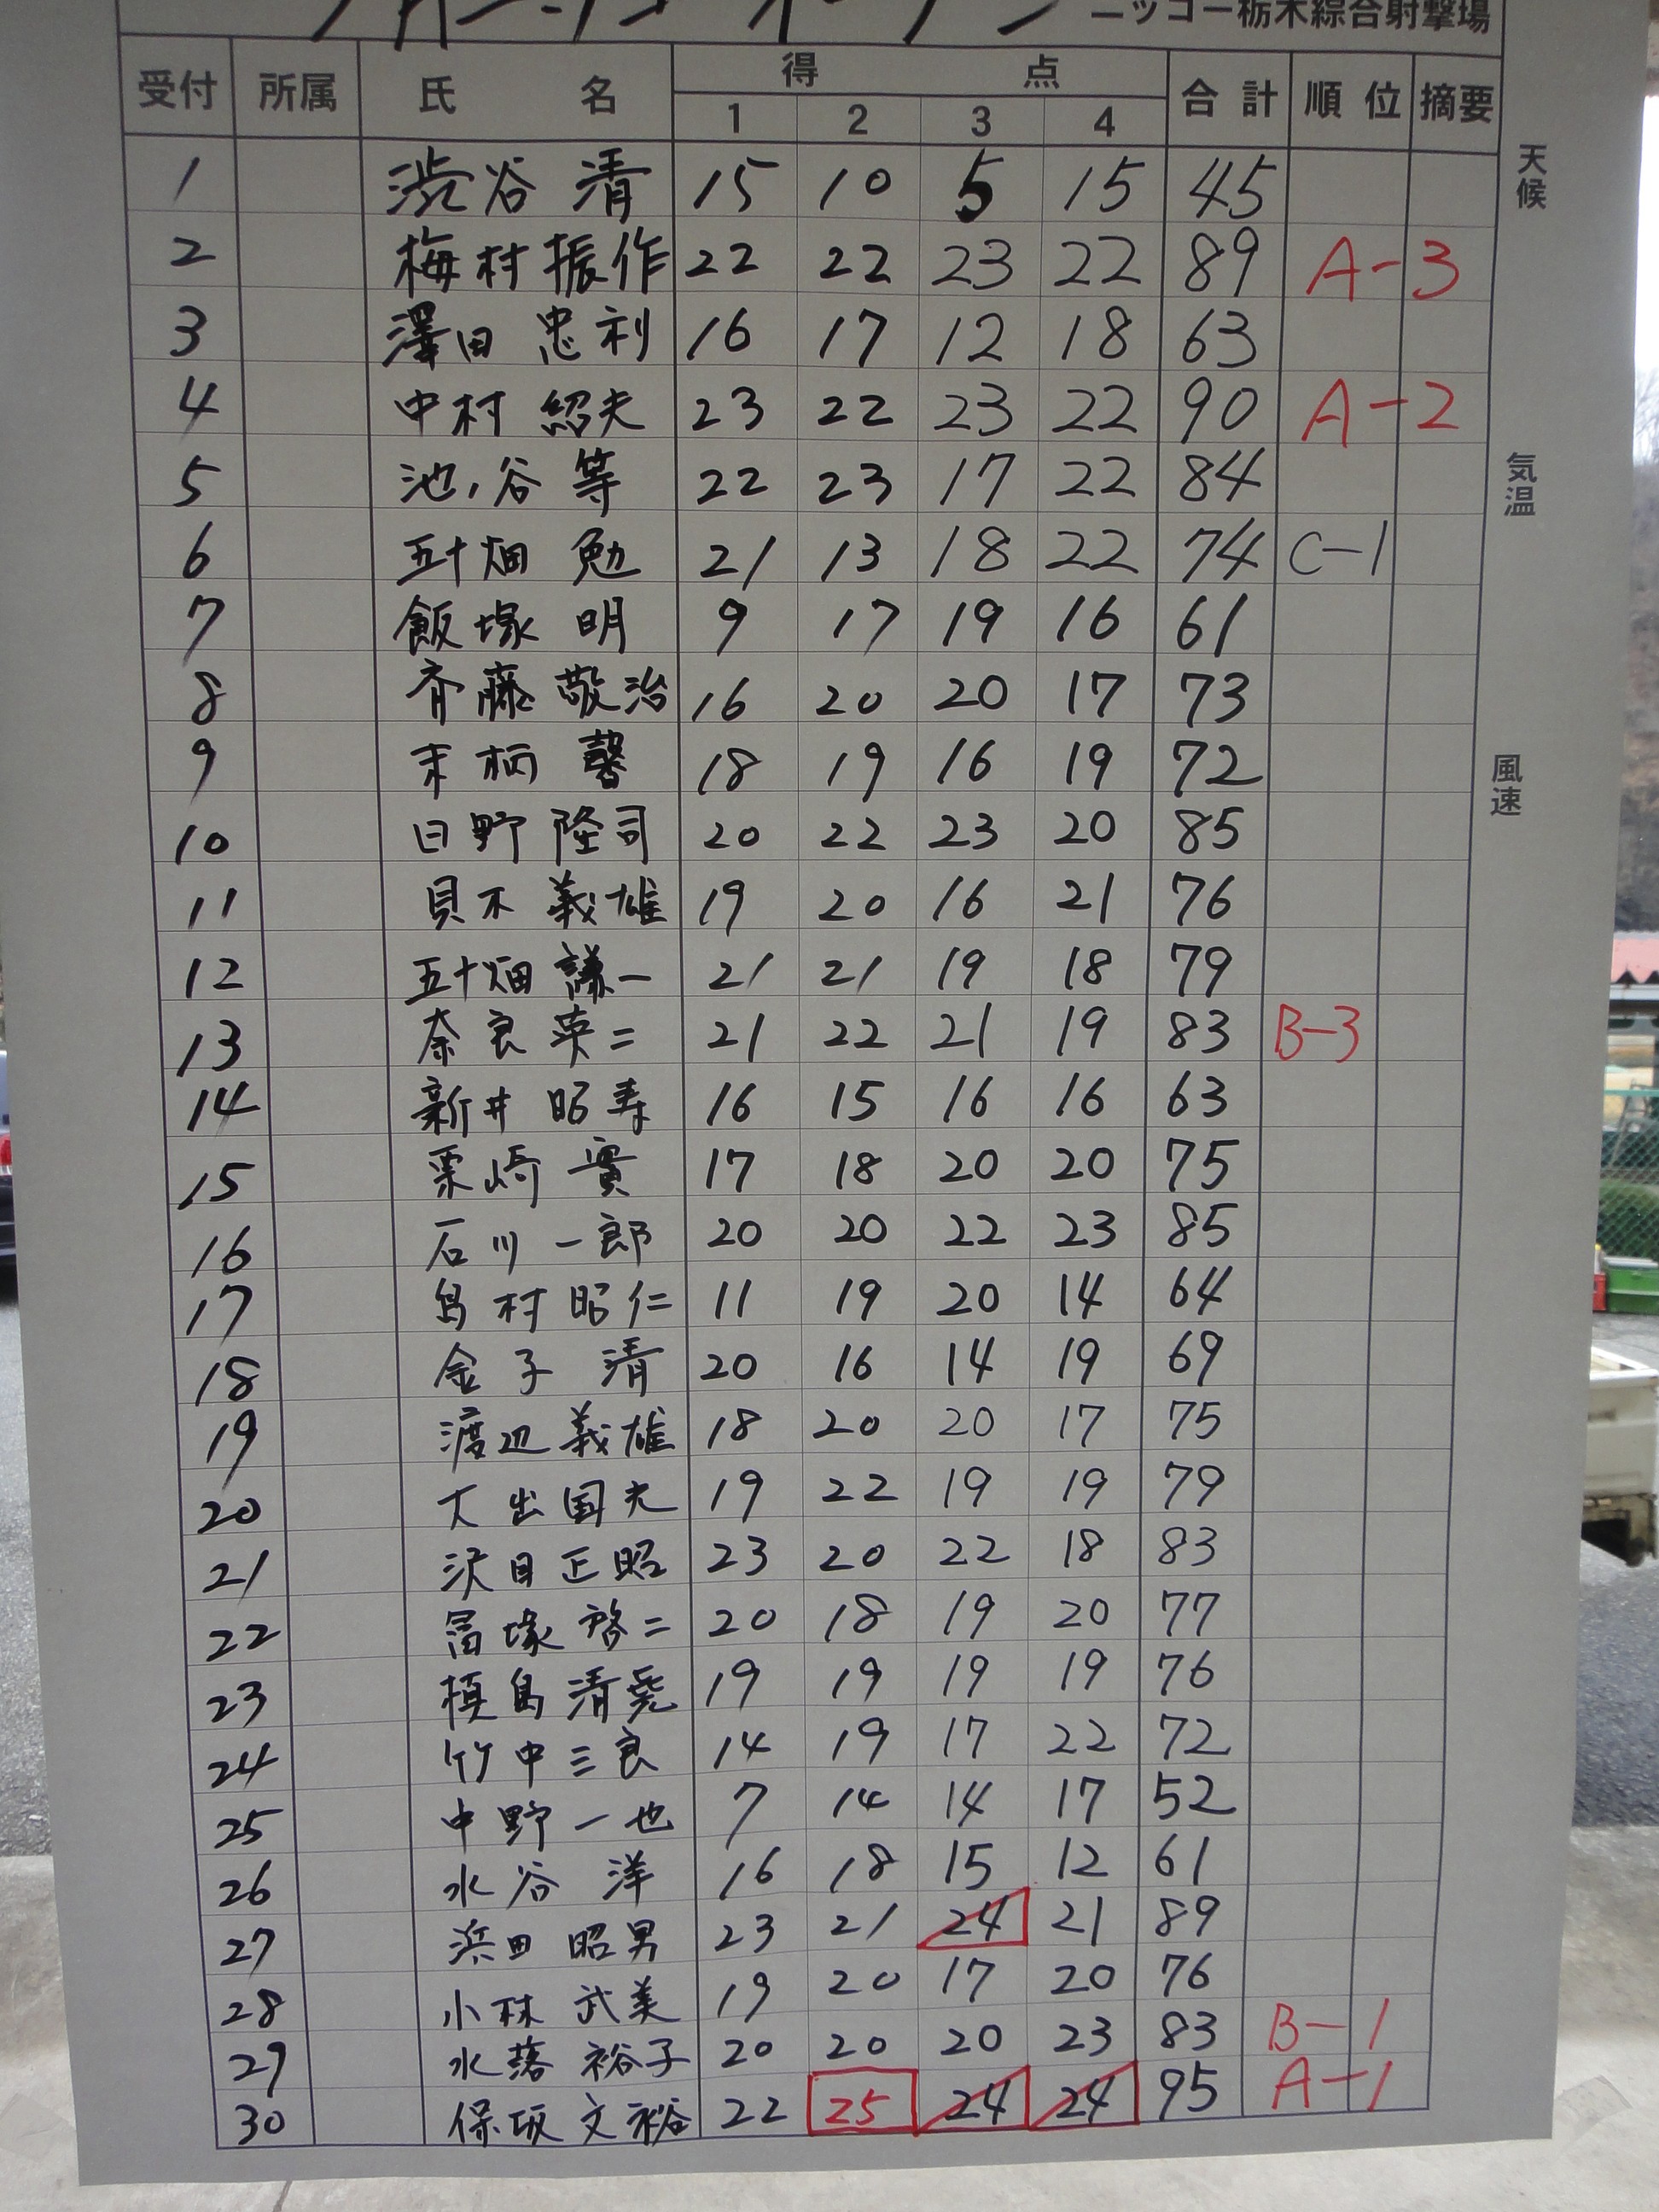 ニッコー栃木綜合射撃場
受付 所属 氏名 得点 合計 順位 摘要
1 2 3 4
天候
1 渋谷 清 15 10 5 15 45
2 梅村振作 22 22 23 22 89 A-3
3 澤田 忠利 16 17 12 18 63
4 中村 紹夫 23 22 23 22 90 A-2
気温
5 池ノ谷 等 22 23 17 22 84
6 五十畑 勉 21 13 18 22 74 C-1
7 飯塚 明 9 17 19 16 61
8 斉藤敬治 16 20 20 17 73
風速
9 末柄 馨 18 19 16 19 72
10 日野隆司 20 22 23 20 85
11 貝木義雄 19 20 16 21 76
12 五十畑謙一 21 21 19 18 79
13 奈良英二 21 22 21 19 83 B-3
14 新井昭寿 16 15 16 16 63
15 栗崎 實 17 18 20 20 75
16 石川一郎 20 20 22 23 85
17 島村昭仁 11 19 20 14 64
18 金子 清 20 16 14 19 69
19 渡辺義雄 18 20 20 17 75
20 大出国光 19 22 19 19 79
21 沢目正昭 23 20 22 18 83
22 冨塚啓二 20 18 19 20 77
23 槙島清尭 19 19 19 19 76
24 竹中三良 14 19 17 22 72
25 中野一也 7 14 14 17 52
26 水谷 洋 16 18 15 12 61
27 浜田昭男 23 21 24 21 89
28 小林武美 19 20 17 20 76
29 水落裕子 20 20 20 23 83 B-1
30 保坂文裕 22 25 24 24 95 A-1